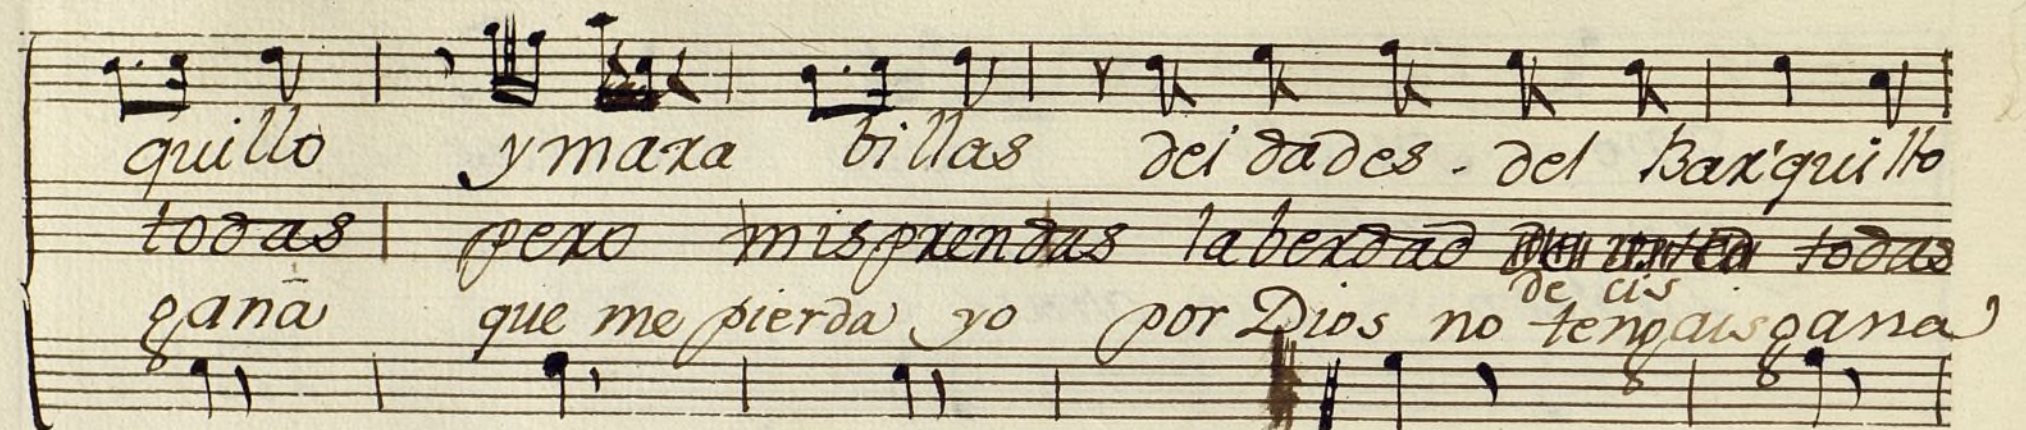 quillo y mara billas dei dades. del Bar'quillo
todas pero mis prendas la berdad todas
de cis
ganã que me pierda yo por Dios no tengais gana